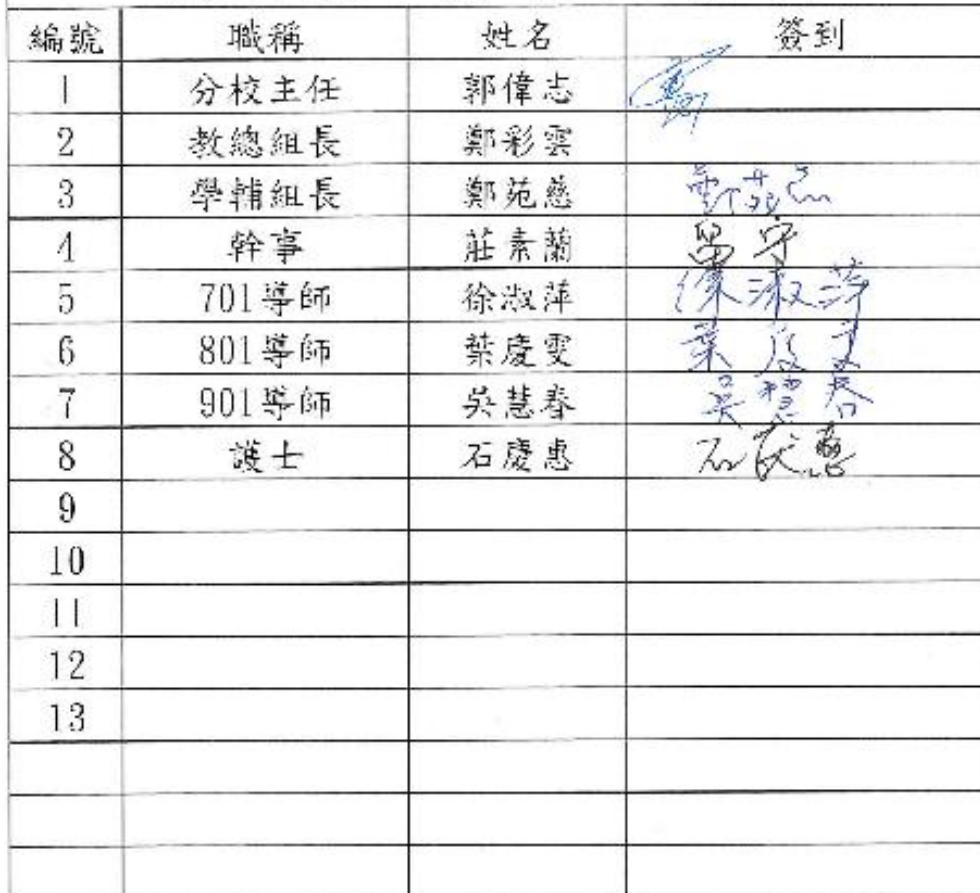 編號 職稱 姓名 簽到
1 分校主任 郭偉志
2 教總組長 鄭彩雲
3 學輔組長 鄭苑慈 鄭苑慈
4 幹事 莊素蘭 留守
5 701導師 徐淑萍 徐淑萍
6 801導師 葉慶雯 葉慶雯
7 901導師 吳慧春 吳慧春
8 護士 石慶惠 石慶惠
9
10
11
12
13